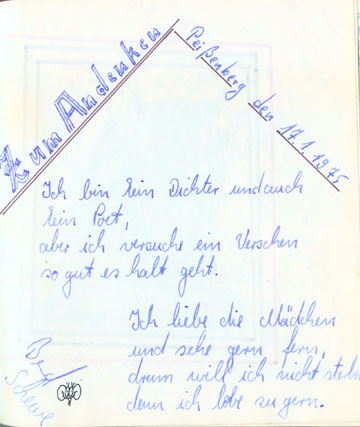 Zum Andenken
Peißenberg den 17.1.1975
Ich bin kein Dichter und auch
kein Poet,
aber ich versuche ein Verschen
so gut es halt geht.
Ich liebe die Mädchen
und sehe gern fern,
drum will ich nicht sterben
denn ich lebe zu gern.